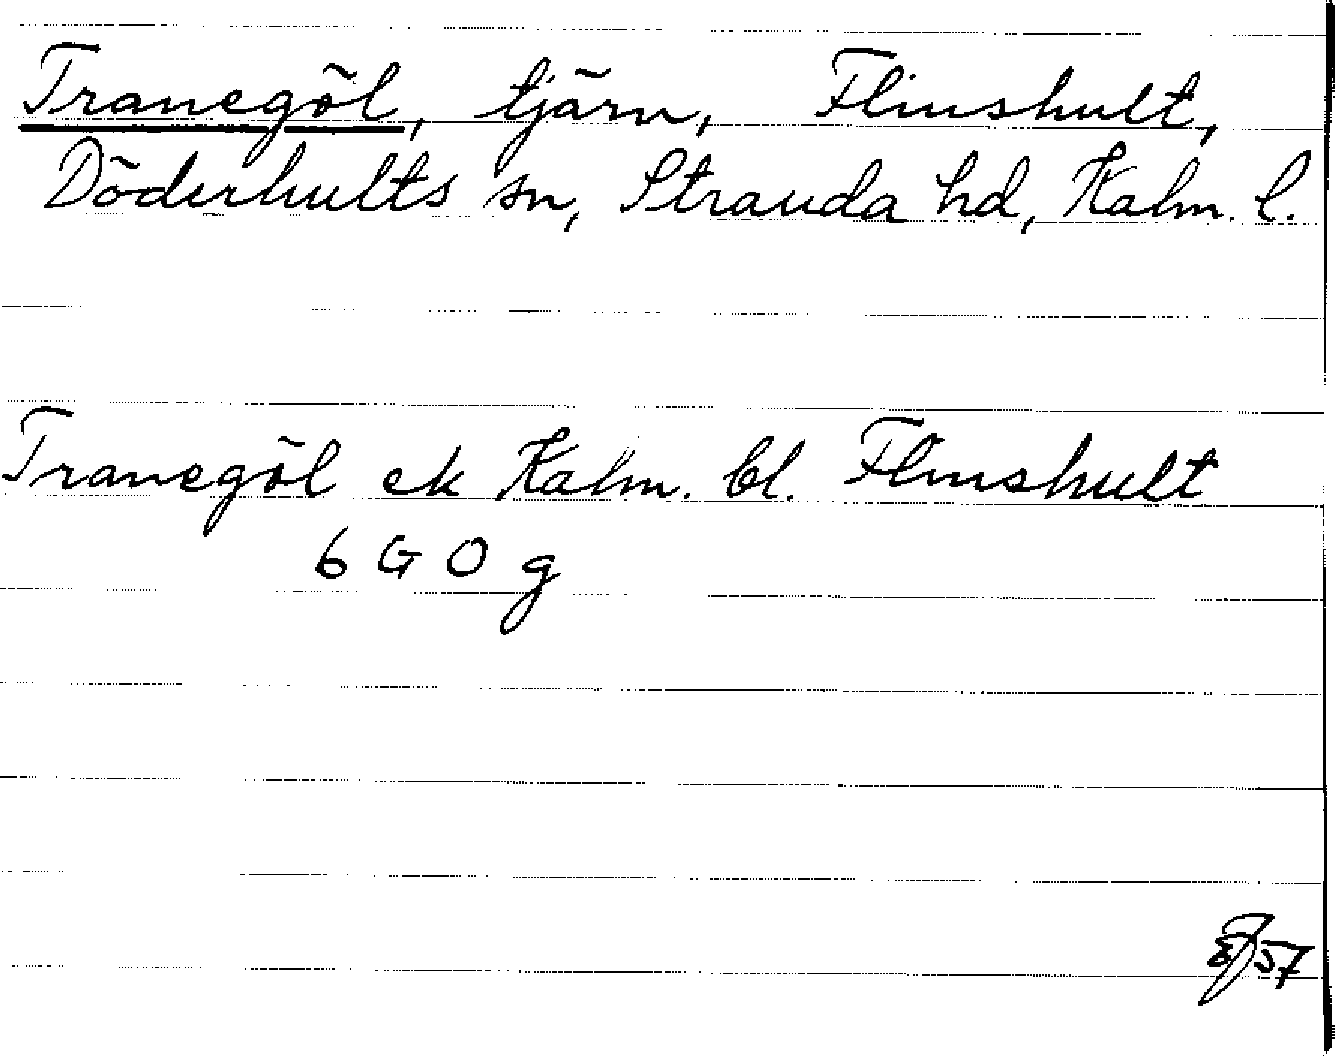 Tranegöl, tjärn, Flinshult,
Döderhults sn, Stranda hd, Kalm. l.
Tranegöl ek Kalm. bl. Flinshult
6 G O g
57